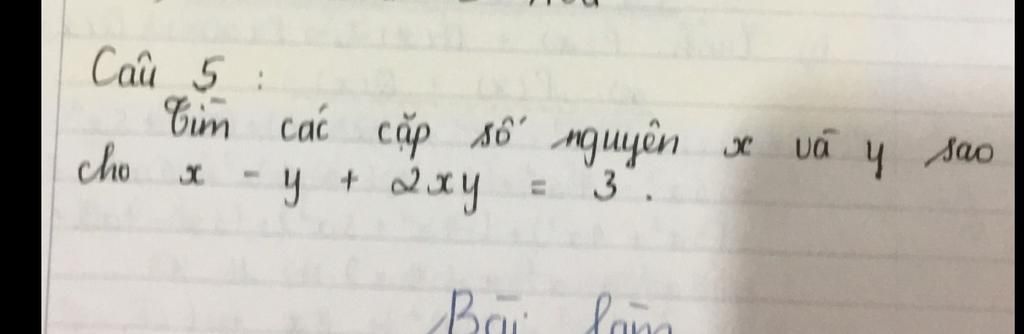 Câu 5 :
Tìm các cặp số nguyên x và y sao
cho x - y + 2xy = 3 .
Bài làm